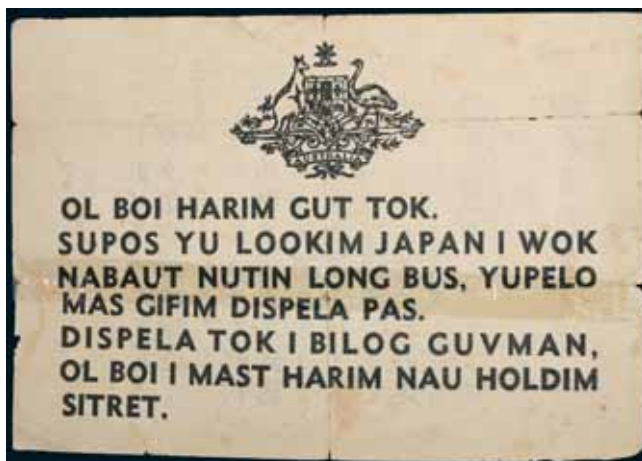 AUSTRALIA
OL BOI HARIM GUT TOK.
SUPOS YU LOOKIM JAPAN I WOK
NABAUT NUTIN LONG BUS, YUPELO
MAS GIFIM DISPELA PAS.
DISPELA TOK I BILOG GUVMAN,
OL BOI I MAST HARIM NAU HOLDIM
SITRET.